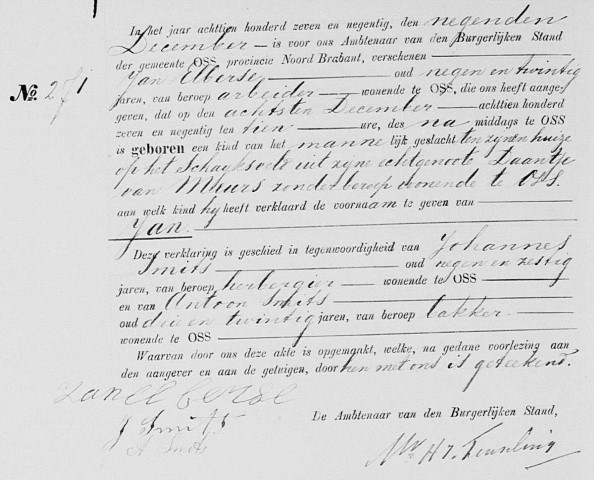 In het jaar achttien honderd zeven en negentig, den negenden
December — is voor ons Ambtenaar van den Burgerlijken Stand
der gemeente OSS provincie Noord Brabant, verschenen —
Jan Elberse — oud negen en twintig
No. 271 jaren, van beroep arbeider — wonende te OSS, die ons heeft aange-
geven, dat op den achtsten December — achttien honderd
zeven en negentig ten tien — ure, des na middags te OSS
is geboren een kind van het manne lijk geslacht ten zynen huize
op het Schayksveld uit zyne echtgenoote Daantje
van Mhurs zonder beroep wonende te Oss.
aan welk kind hy heeft verklaard de voornaam te geven van —
Jan.
Deze verklaring is geschied in tegenwoordigheid van Johannes
Smits — oud negen en zestig
jaren, van beroep herbergier — wonende te OSS —
en van Antoon Smits
oud drie en twintig jaren, van beroep bakker —
wonende te OSS —
Waarvan door ons deze akte is opgemaakt, welke, na gedane voorlezing aan
den aangever en aan de getuigen, door hen met ons is geteekend.
Jan elberse
J Smits
A Smits
De Ambtenaar van den Burgerlijken Stand,